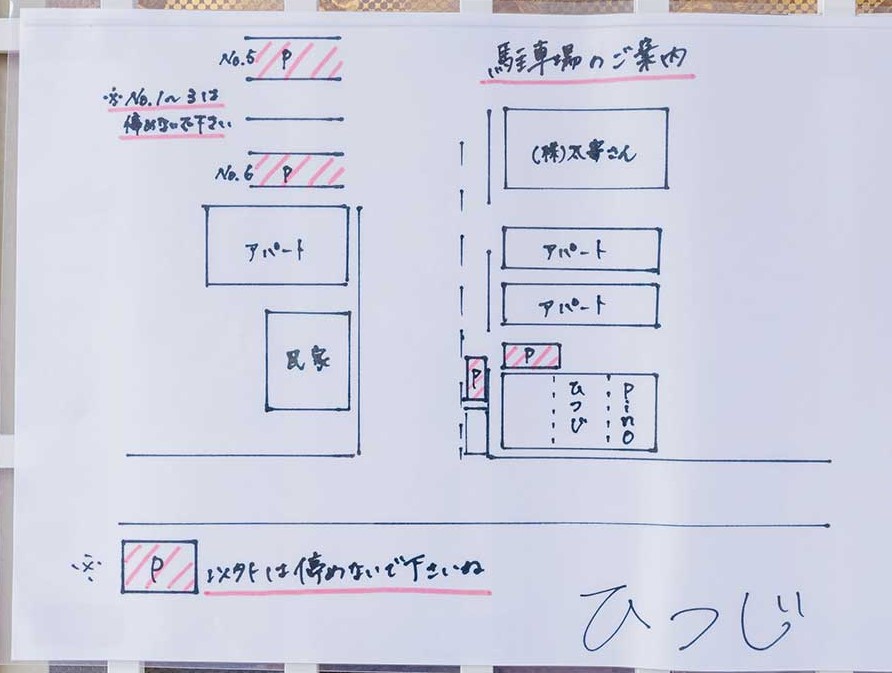 駐車場のご案内
No.5 P
※No.1〜3は
停めないで下さい
No.6 P
(株)太(?)さん
アパート
アパート
アパート
民家
P
P
ひつじ
Pino
※ P 以外は停めないで下さいね
ひつじ